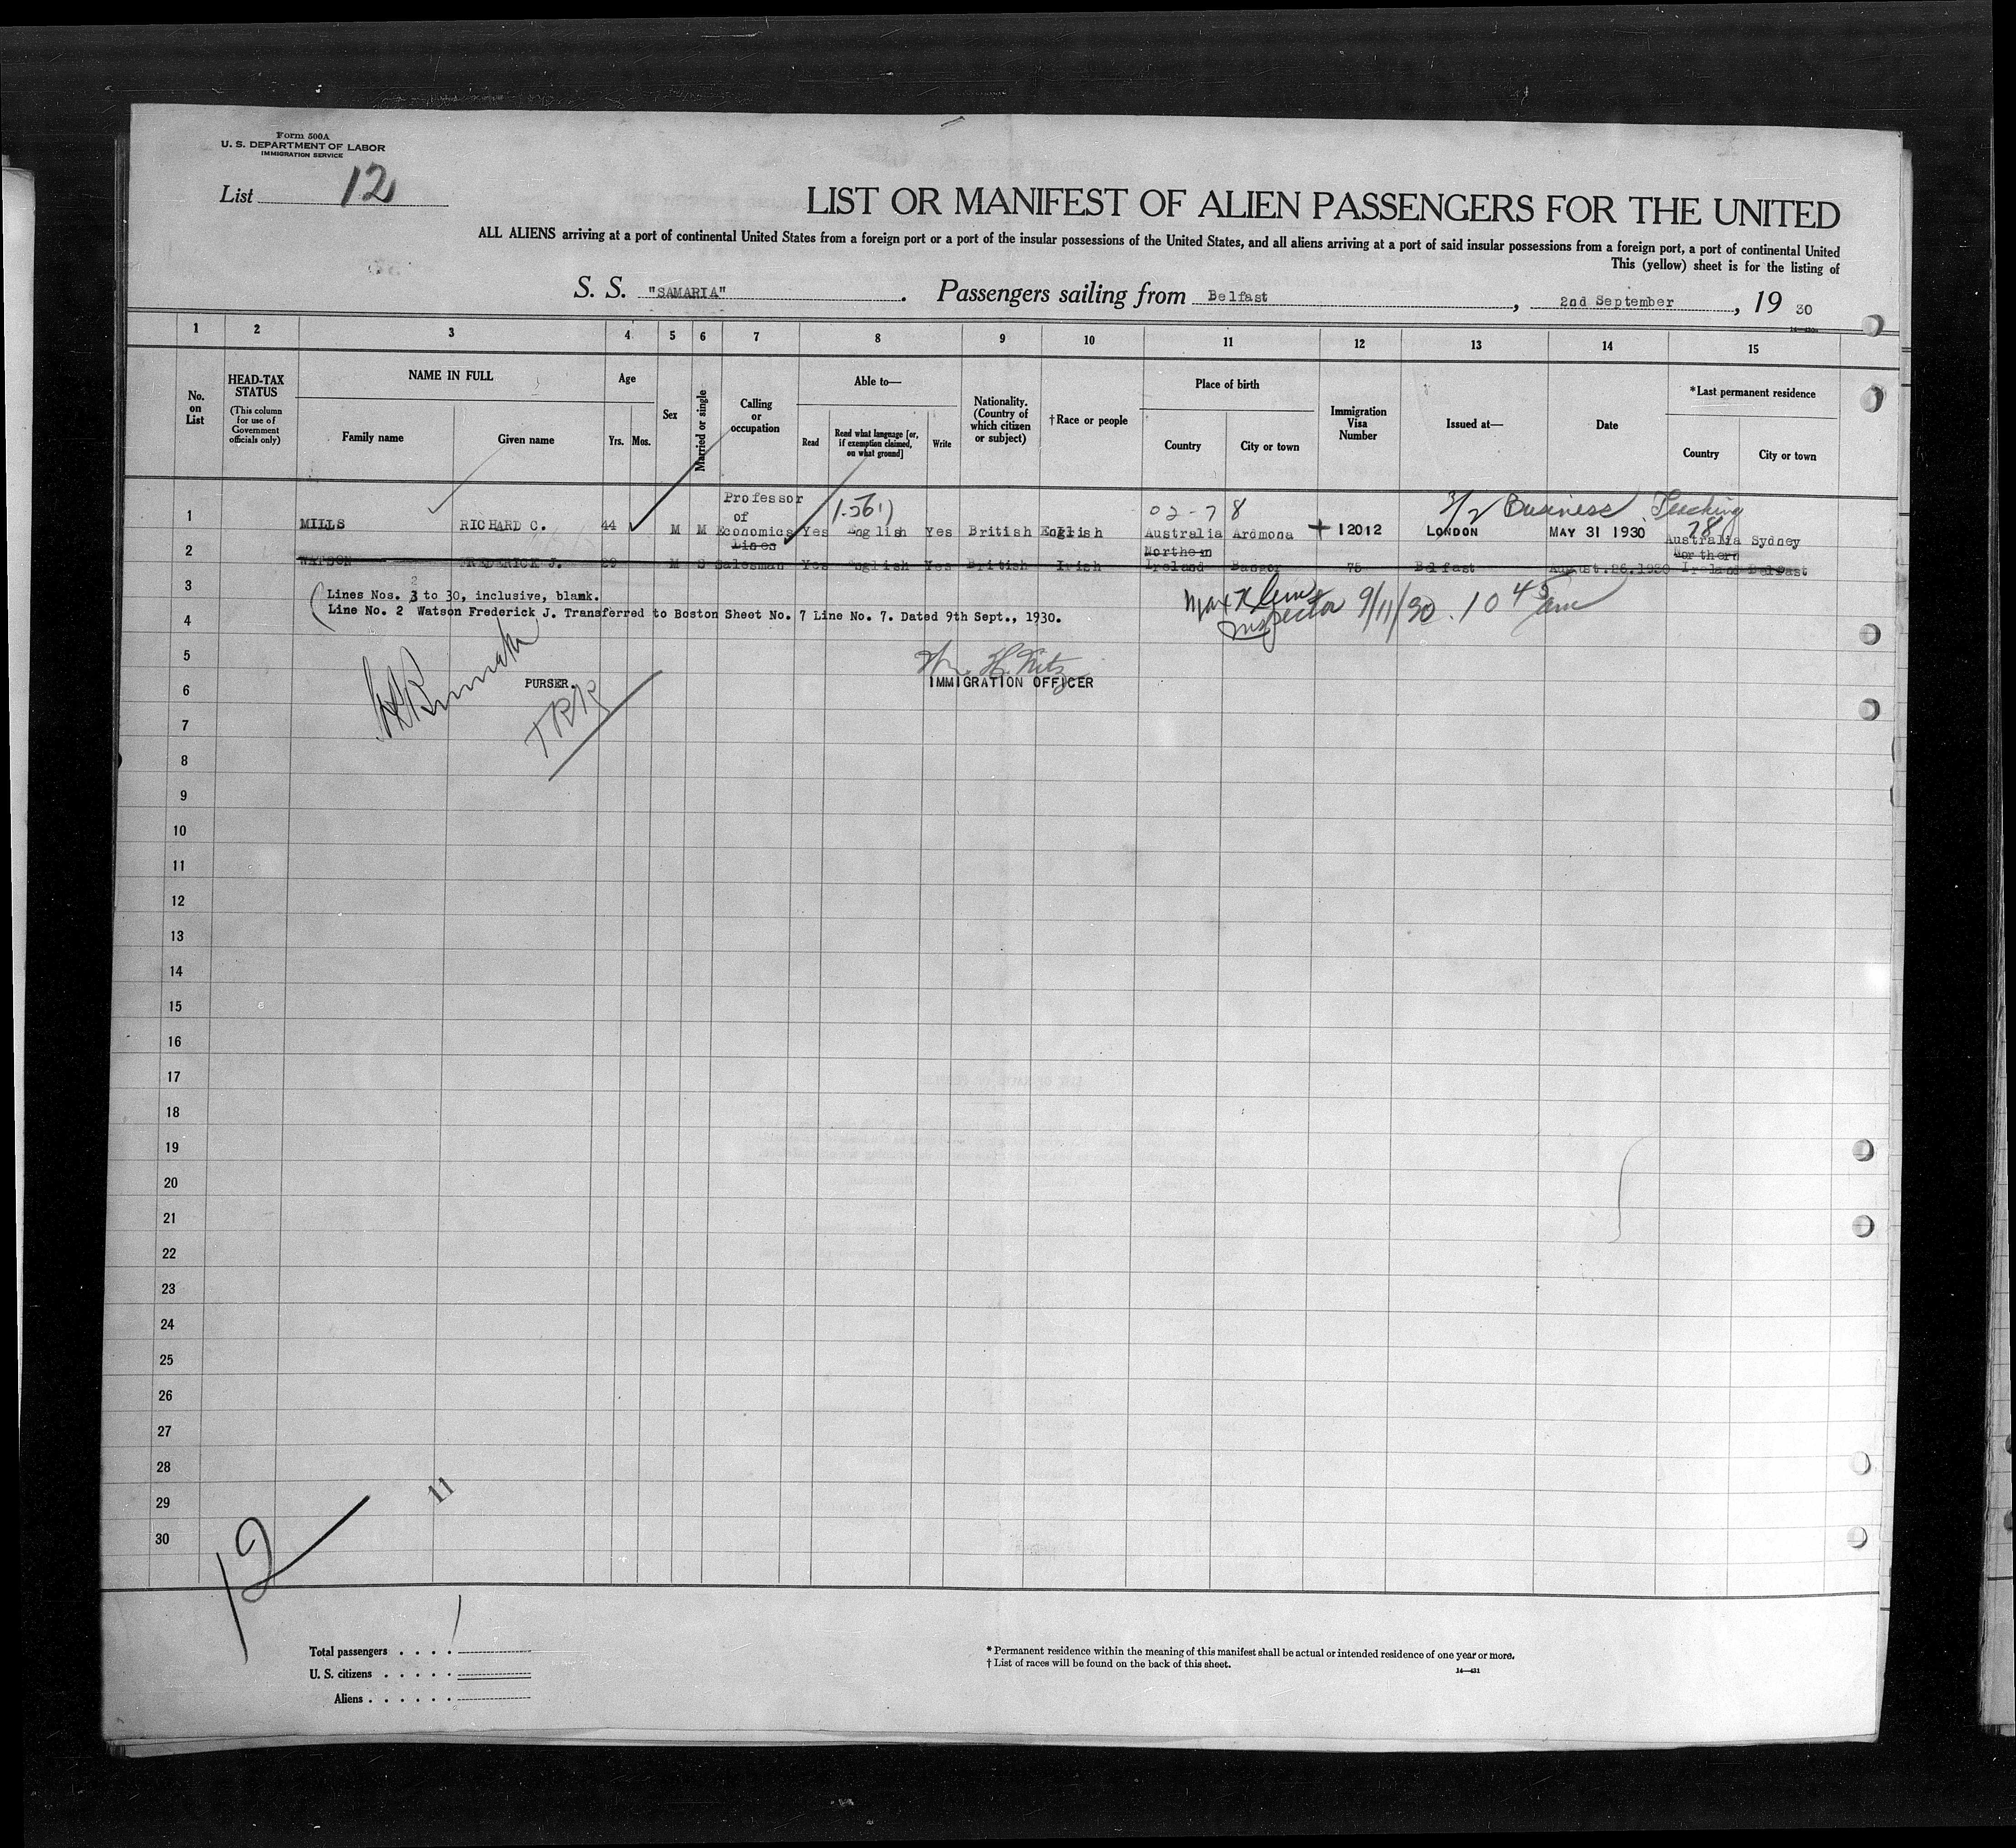 Form 500A
U. S. DEPARTMENT OF LABOR
IMMIGRATION SERVICE
List 12
LIST OR MANIFEST OF ALIEN PASSENGERS FOR THE UNITED
ALL ALIENS arriving at a port of continental United States from a foreign port or a port of the insular possessions of the United States, and all aliens arriving at a port of said insular possessions from a foreign port, a port of continental United
This (yellow) sheet is for the listing of
S. S. "SAMARIA". Passengers sailing from Belfast, 2nd September, 19 30
1 2 3 4 5 6 7 8 9 10 11 12 13 14 15
No. on List
HEAD-TAX STATUS
(This column for use of Government officials only)
NAME IN FULL
Family name
Given name
Age
Yrs. Mos.
Sex
Married or single
Calling or occupation
Able to—
Read
Read what language [or, if exemption claimed, on what ground]
Write
Nationality. (Country of which citizen or subject)
†Race or people
Place of birth
Country
City or town
Immigration Visa Number
Issued at—
Date
*Last permanent residence
Country
City or town
3/2 Business Teaching
02-7 8
28
1 MILLS RICHARD C. 44 M M Professor of Economics Yes English Yes British English Australia Ardmona 12012 LONDON MAY 31 1930 Australia Sydney
2 WATSON FREDERICK J. 29 M S Lines Salesman Yes English Yes British Irish Northern Ireland Bangor 75 Belfast August.26.1930 Northern Ireland Belfast
3 Lines Nos. 3 to 30, inclusive, blank.
2
4 Line No. 2 Watson Frederick J. Transferred to Boston Sheet No. 7 Line No. 7. Dated 9th Sept., 1930.
Inspector 9/11/30. 10 45 am
5
6 PURSER. IMMIGRATION OFFICER
7
8
9
10
11
12
13
14
15
16
17
18
19
20
21
22
23
24
25
26
27
28
29
30
12
11
Total passengers . . . . 1
U. S. citizens . . . . .
Aliens . . . . . .
* Permanent residence within the meaning of this manifest shall be actual or intended residence of one year or more.
† List of races will be found on the back of this sheet.
14—431